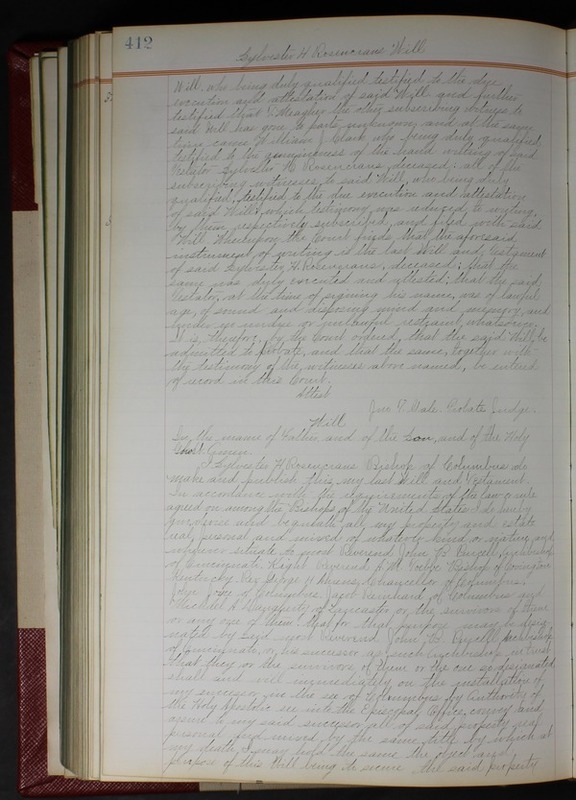 412
Sylvester H Rosencrans Will
Will, who being duly qualified, testified to the due
execution and attestation of said Will and further
testified that Meagher the other subscribing witness to
said Will has gone to parts unknown, and at the same
time came William J. Clark who being duly qualified,
testified to the genuineness of the hand writing of said
Testator Sylvester H Rosencrans deceased; all of the
subscribing witnesses to said Will, who being duly
qualified, testified to the due execution and attestation
of said Will; which testimony was reduced to writing,
by them respectively subscribed, and filed with said
Will. Whereupon the Court finds that the aforesaid
instrument of writing is the last Will and Testament
of said Sylvester H. Rosencrans, deceased; that the
same was duly executed and attested; that the said
Testator, at the time of signing his name, was of lawful
age, of sound and disposing mind and memory, and
under no undue or unlawful restraint whatsoever.
It is, therefore, by the Court ordered that the said Will be
admitted to probate, and that the same, together with
the testimony of the witnesses above named, be entered
of record in this Court.
Attest
Jno. T. Gale. Probate Judge.
Will
In the name of Father, and of the Son, and of the Holy
Ghost. Amen.
I Sylvester H Rosencrans Bishop of Columbus do
make and publish this, my last Will and Testament.
In accordance with the requirements of the law & rule
agreed on among the Bishops of the United States I do hereby
give devise and bequeath all my property and estate
real, personal and mixed of whatever kind or nature and
wherever situate to most Reverend John B. Purcell, Archbishop
of Cincinnati. Right Reverend A. M. Toebbe Bishop of Covington
Kentucky. Rev George H Ahrens, Chancellor of Columbus.
John Joyce of Columbus. Jacob Reinhard, of Columbus and
Michael A Daugherty of Lancaster or, the survivor of them
or any one of them that for that purpose may be desig-
nated by said most Reverend John B. Purcell Archbishop
of Cincinnati, or his successor as such Archbishop in trust
that they or the survivor of them or the one so designated
shall and will immediately on the installation of
my successor in the see of Columbus by authority of
the Holy Apostolic see into the Episcopal Office, convey and
assign to my said successor, all of said property real
personal and mixed by the same title by which at
my death I may hold the same the object and
purpose of this Will being to secure the said property